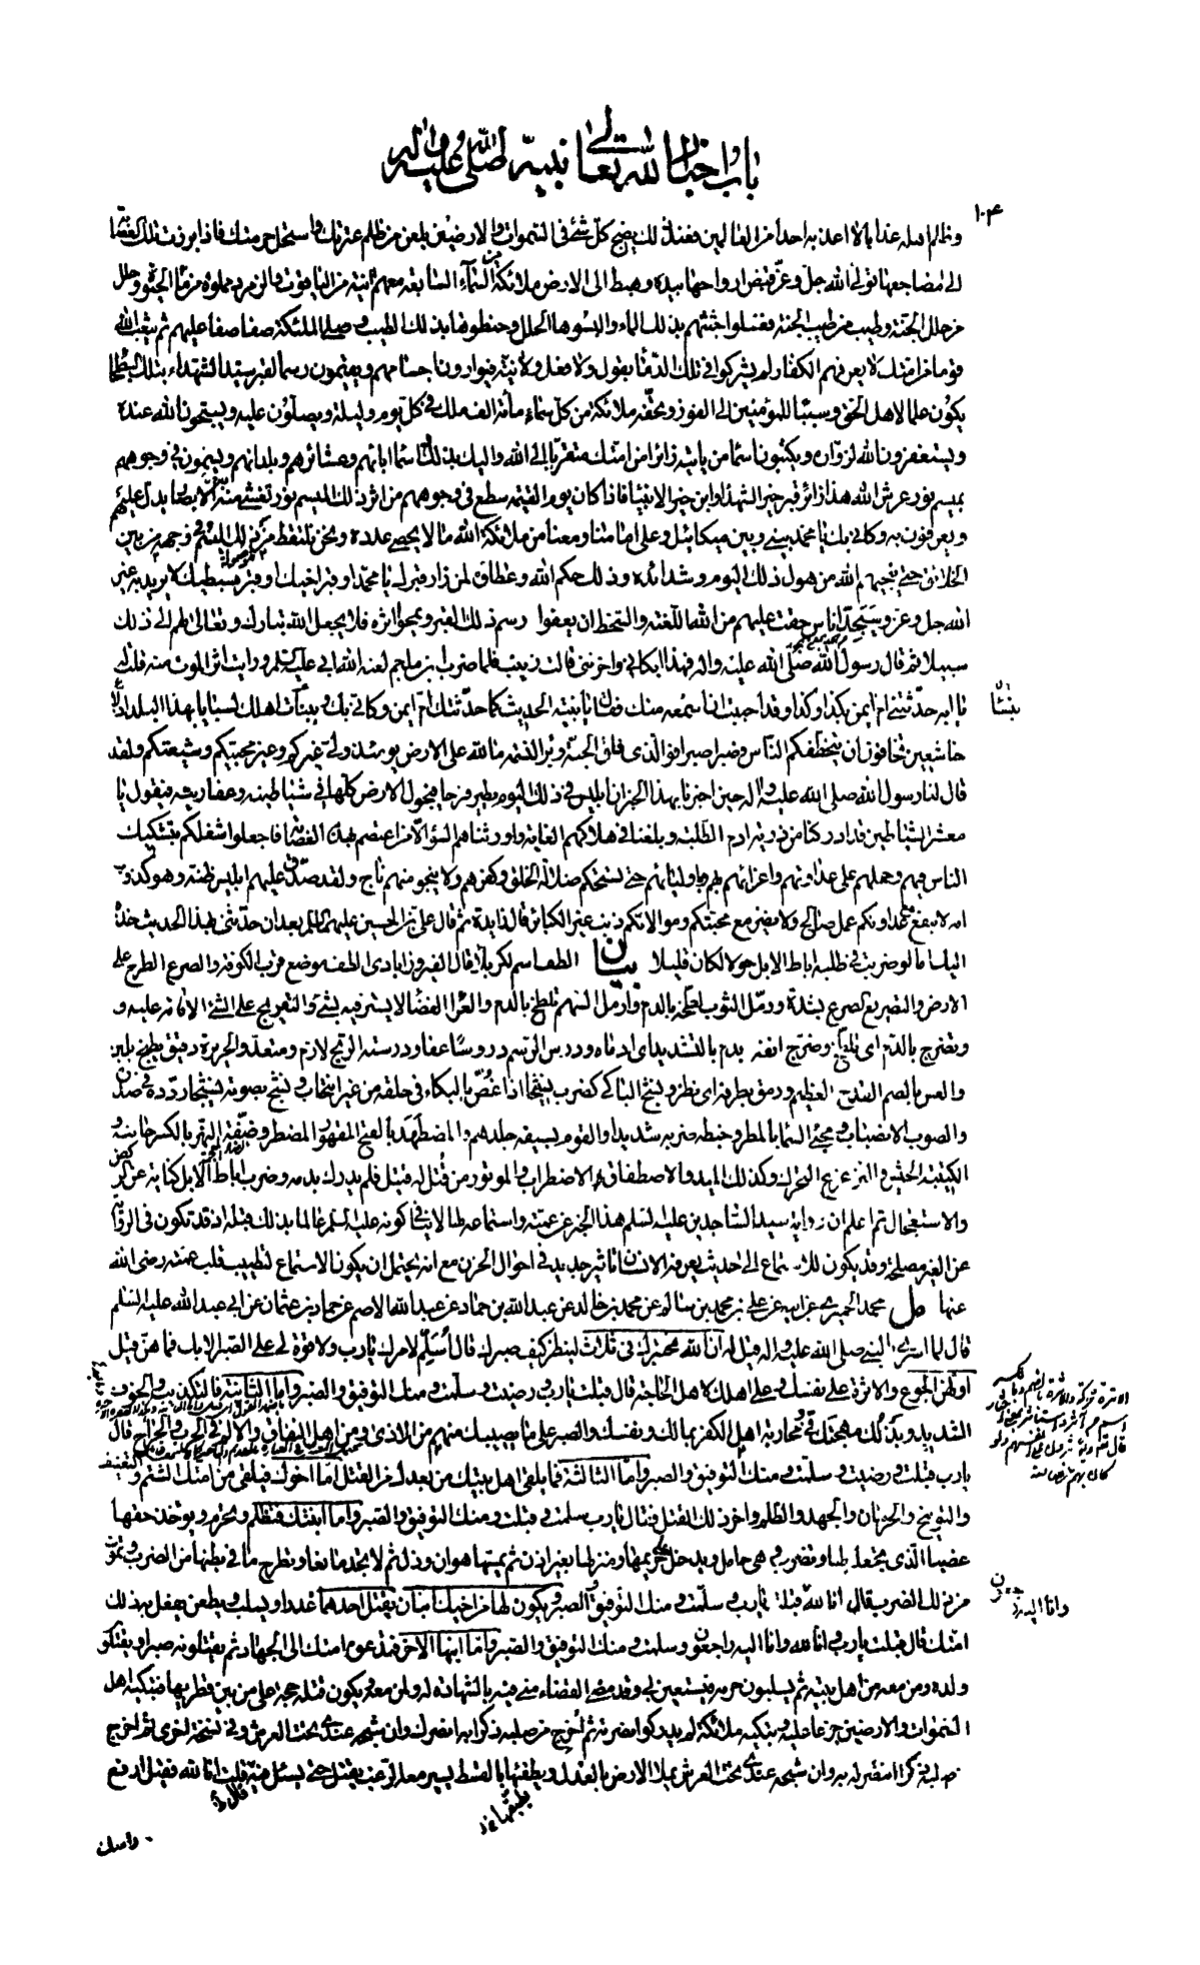 باب اخبار الله تعالى نبيه صلى الله عليه واله
١٠٤
وظلم اهله عذابا لا اعذبه احدا من العالمين فعند ذلك يضج كل شئ في السموات والارضين بلعن من ظلم عترتك واستحل حرمتك فاذا برزت تلك العصابة
الى مضاجعها تولى الله جل وعز قبض ارواحها بيده وهبط الى الارض ملائكة من السماء السابعة معهم انية من الياقوت والزمرد مملوة من ماء الحيوة وحلل
من حلل الجنة وطيب من طيب الجنة فغسلوا جثثهم بذلك الماء والبسوها الحلل وحنطوها بذلك الطيب وصلى الملئكة صفا صفا عليهم ثم يبعث الله
قوما من امتك لا يعرفهم الكفار لم يشركوا في تلك الدماء بقول ولا فعل ولا نية فيوارون اجسامهم ويقيمون رسما لقبر سيد الشهداء بتلك البطحاء
يكون علما لاهل الحق وسببا للمؤمنين الى الفوز وتحفه ملائكة من كل سماء مائة الف ملك في كل يوم وليلة ويصلون عليه ويسبحون الله عنده
ويستغفرون الله لزواره ويكتبون اسماء من ياتيه زائرا من امتك متقربا الى الله واليك بذلك واسماء ابائهم وعشائرهم وبلدانهم ويسمون في وجوههم
بميسم نور عرش الله هذا زائر قبر خير الشهداء وابن خير الانبياء فاذا كان يوم القيمة سطع في وجوههم من اثر ذلك الميسم نور تغشى منه الابصار يدل عليهم
ويعرفون به وكاني بك يا محمد بيني وبين ميكائيل وعلي امامنا ومعنا من ملائكة الله ما لا يحصى عدده ونحن نلتقط من ذلك الميسم في وجهه من بين
الخلائق حتى ينجيهم الله من هول ذلك اليوم وشدائده وذلك حكم الله وعطاؤه لمن زار قبرك يا محمد او قبر اخيك او قبر سبطيك لا يريد به غير
الله جل وعز وسيجد اناس حقت عليهم من الله اللعنة والسخط ان يعفوا رسم ذلك القبر ويمحوا اثره فلا يجعل الله تبارك وتعالى لهم الى ذلك
سبيلا ثم قال رسول الله صلى الله عليه واله فهذا ابكاني واحزنني قالت زينب فلما ضرب ابن ملجم لعنه الله ابي عليه السلم ورايت اثر الموت منه قلت له
يا ابه حدثتني ام ايمن بكذا وكذا وقد احببت ان اسمعه منك فقال يا بنية الحديث كما حدثتك ام ايمن وكاني بك وببنات اهلك لسبايا بهذا البلد اذلاء
خاشعين تخافون ان يتخطفكم الناس فصبرا صبرا فوالذي فلق الحبة وبرا النسمة ما لله على الارض يومئذ ولي غيركم وغير محبيكم وشيعتكم ولقد
قال لنا رسول الله صلى الله عليه واله حين اخبرنا بهذا الخبر ان ابليس في ذلك اليوم يطير فرحا فيجول الارض كلها في شياطينه وعفاريته فيقول يا
معشر الشياطين قد ادركنا من ذرية ادم الطلبة وبلغنا في هلاكهم الغاية واورثناهم السوء الا من اعتصم بهذه العصابة فاجعلوا شغلكم بتشكيك
الناس فيهم وحملهم على عداوتهم واغرائهم بهم وباوليائهم حتى تستحكم ضلالة الخلق وكفرهم ولا ينجو منهم ناج ولقد صدق عليهم ابليس ظنه وهو كذوب
انه لا ينفع مع عداوتكم عمل صالح ولا يضر مع محبتكم وموالاتكم ذنب غير الكبائر قال زايدة ثم قال علي بن الحسين عليهما السلم بعد ان حدثني بهذا الحديث خذه
اليك اما لو ضربت في طلبه اباط الابل حولا لكان قليلا بيان الطف اسم لكربلا قال الفيروزابادي الطف موضع قرب الكوفة والصرع الطرح على
الارض والتصريع الصرع بشدة ورمل الثوب لطخه بالدم وارمل السهم تلطخ بالدم والعراء الفضاء لا يستر فيه بشئ والتعريج على الشئ الاقامة عليه و
وتضرج بالدم اى تلطخ وضرج انفه بدم بالتشديد اى ادماه ودرس الرسم دروسا عفا ودرسته الريح لازم ومتعد والحريرة دقيق يطبخ بلبن
والعس بالضم القدح العظيم ورمق بطرفه اى نظر ونشج الباكي كضرب نشيجا اذا غص بالبكاء في حلقه من غير انتحاب ونشج بصوته نشيجا ردده في صدره
والصوب الانصباب ومجئ السماء بالمطر وخبطه ضربه شديدا والقوم بسيفه جلدهم والمضطهد بالفتح المقهور المضطر وضفة النهر بالكسر جانبه و
الكتيبة الجيش والتزعزع التحرك وكذلك الميد والاصطفاق الاضطراب والموتور من قتل له قتيل فلم يدرك بدمه وضرب اباط الابل كناية عن الركض
والاستعجال ثم اعلم ان رواية سيد الساجدين عليه السلم هذا الخبر عن عمته واستماعه لها لا ينافي كونه عليه السلم عالما بذلك قبله اذ قد تكون في الرواية
عن الغير مصلحة وقد يكون للاستماع الى حديث يعرفه الانسان تاثير جديد في احوال الحزن مع انه يحتمل ان يكون الاستماع لتطييب قلب عمته رضى الله
عنها مل محمد الحميري عن ابيه عن علي بن محمد بن سالم عن محمد بن خالد عن عبد الله بن حماد عن عبد الله الاصم عن حماد بن عثمان عن ابي عبد الله عليه السلم
قال لما اسري بالنبي صلى الله عليه واله قيل له ان الله مختبرك في ثلاث لينظر كيف صبرك قال اسلم لامرك يا رب ولا قوة لي على الصبر الا بك فما هن قيل
اولهن الجوع والاثرة على نفسك وعلى اهلك لاهل الحاجة قال قبلت يا رب ورضيت وسلمت ومنك التوفيق والصبر واما الثانية فالتكذيب والخوف
الشديد وبذلك مهجتك في ومحاربة اهل الكفر بمالك ونفسك والصبر على ما يصيبك منهم من الاذى ومن اهل النفاق والالم في الحرب والجراح قال
يا رب قبلت ورضيت وسلمت ومنك التوفيق والصبر واما الثالثة فما يلقى اهل بيتك من بعدك من القتل اما اخوك فيلقى من امتك الشتم والتعنيف
والتوبيخ والحرمان والجهد والظلم واخر ذلك القتل فقال يا رب سلمت وقبلت ومنك التوفيق والصبر واما ابنتك فتظلم وتحرم ويؤخذ حقها
غصبا الذي تجعله لها وتضرب وهي حامل ويدخل على حريمها ومنزلها بغير اذن ثم يمسها هوان وذل ثم لا تجد مانعا وتطرح ما في بطنها من الضرب وتموت
من ذلك الضرب قال انا لله قبلت يا رب وسلمت ومنك التوفيق والصبر ويكون لها من اخيك ابنان يقتل احدهما غدرا ويسلب ويطعن يفعل به ذلك
امتك قال قبلت يا رب وانا لله وانا اليه راجعون وسلمت ومنك التوفيق والصبر واما ابنها الاخر فتدعوه امتك الى الجهاد ثم يقتلونه صبرا ويقتلون
ولده ومن معه من اهل بيته ثم يسلبون حرمه فيستعين بي وقد مضى القضاء مني فيه بالشهادة له ولمن معه ويكون قتله حجة على من بين قطريها فتبكيه اهل
السموات والارضين جزعا عليه وتبكيه ملائكة لم يدركوا نصرته ثم اخرج من صلبه ذكرا به انصرك وان شبحه عندي تحت العرش وفي نسخة اخرى ثم اخرج
من صلبه ذكرا انتصر له به وان شبحه عندي تحت العرش يملا الارض بالعدل ويطفيها بالقسط يسير معه الرعب يقتل حتى يسئل فيه قلت انا لله فقيل ارفع